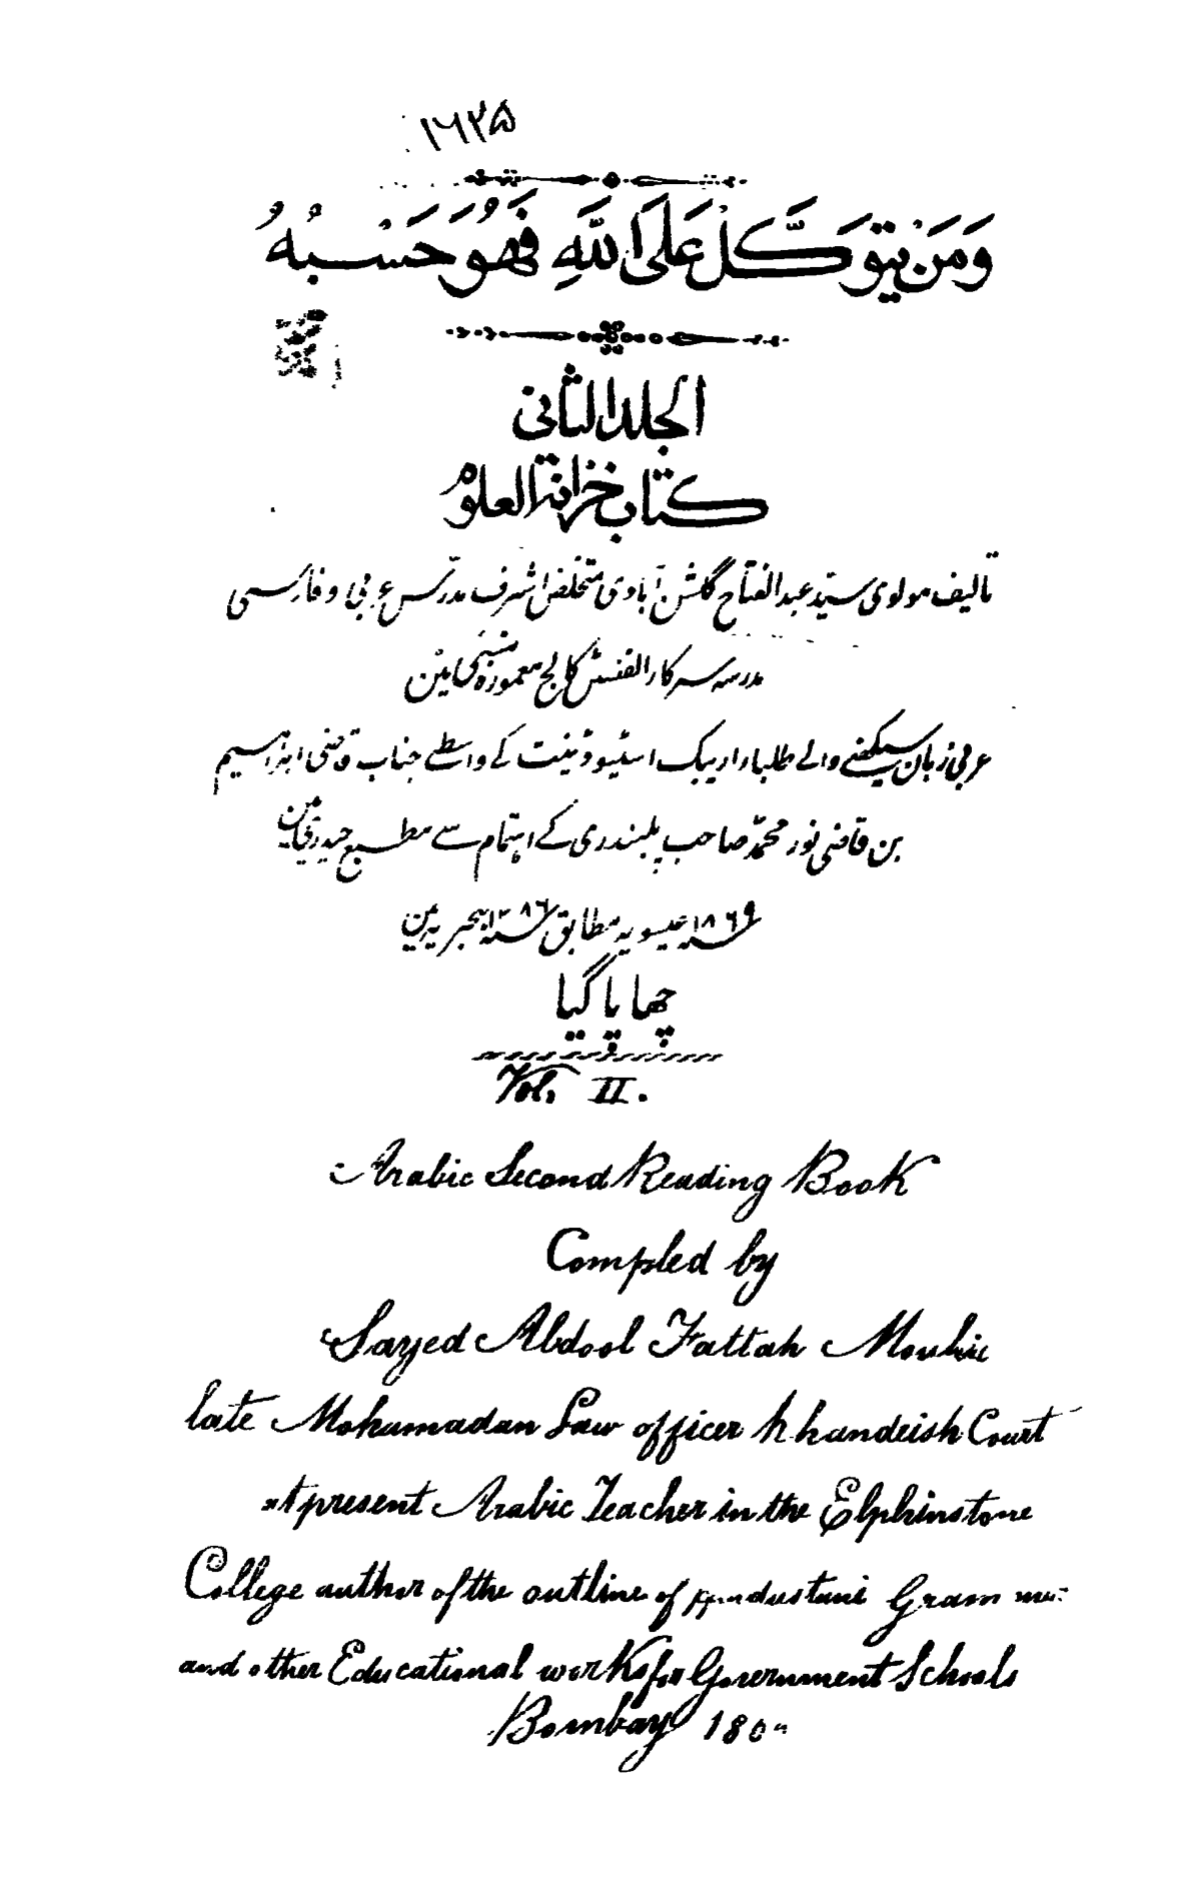 ۱۶۲۵
وَمَنْ يَتَوَكَّلْ عَلَى اللّٰهِ فَهُوَ حَسْبُهُ
الجلد الثاني
كتاب خزانة العلوم
تالیف مولوی سیّد عبد الفتاح گلشن آبادی متخلص اشرف مدرّس عربی و فارسی
مدرسہ سرکار الفنسٹن کالج معمورۂ بمبئی مین
عربی زبان سیکھنے والے طلبا اریبک اسٹیوڈینٹ کے واسطے جناب قاضی ابراہیم
بن قاضی نور محمّد صاحب پلبندری کے اہتمام سے مطبع حیدری مین
سنہ ۱۸۶۹ عیسویہ مطابق سنہ ۱۲۸۶ ہجریہ مین
چھاپا گیا
Vol. II.
Arabic Second Reading Book
Compled by
Sayed Abdool Fattah Moulvie
late Mohamadan Law officer Khandeish Court
at present Arabic Teacher in the Elphinstone
College author of the outline of Hindustani Gram
and other Educational works for Government Schools
Bombay